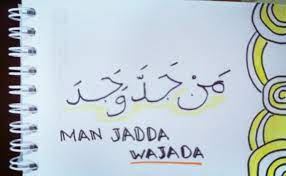 مَنْ جَدَّ وَجَدَ
MAN JADDA
WAJADA